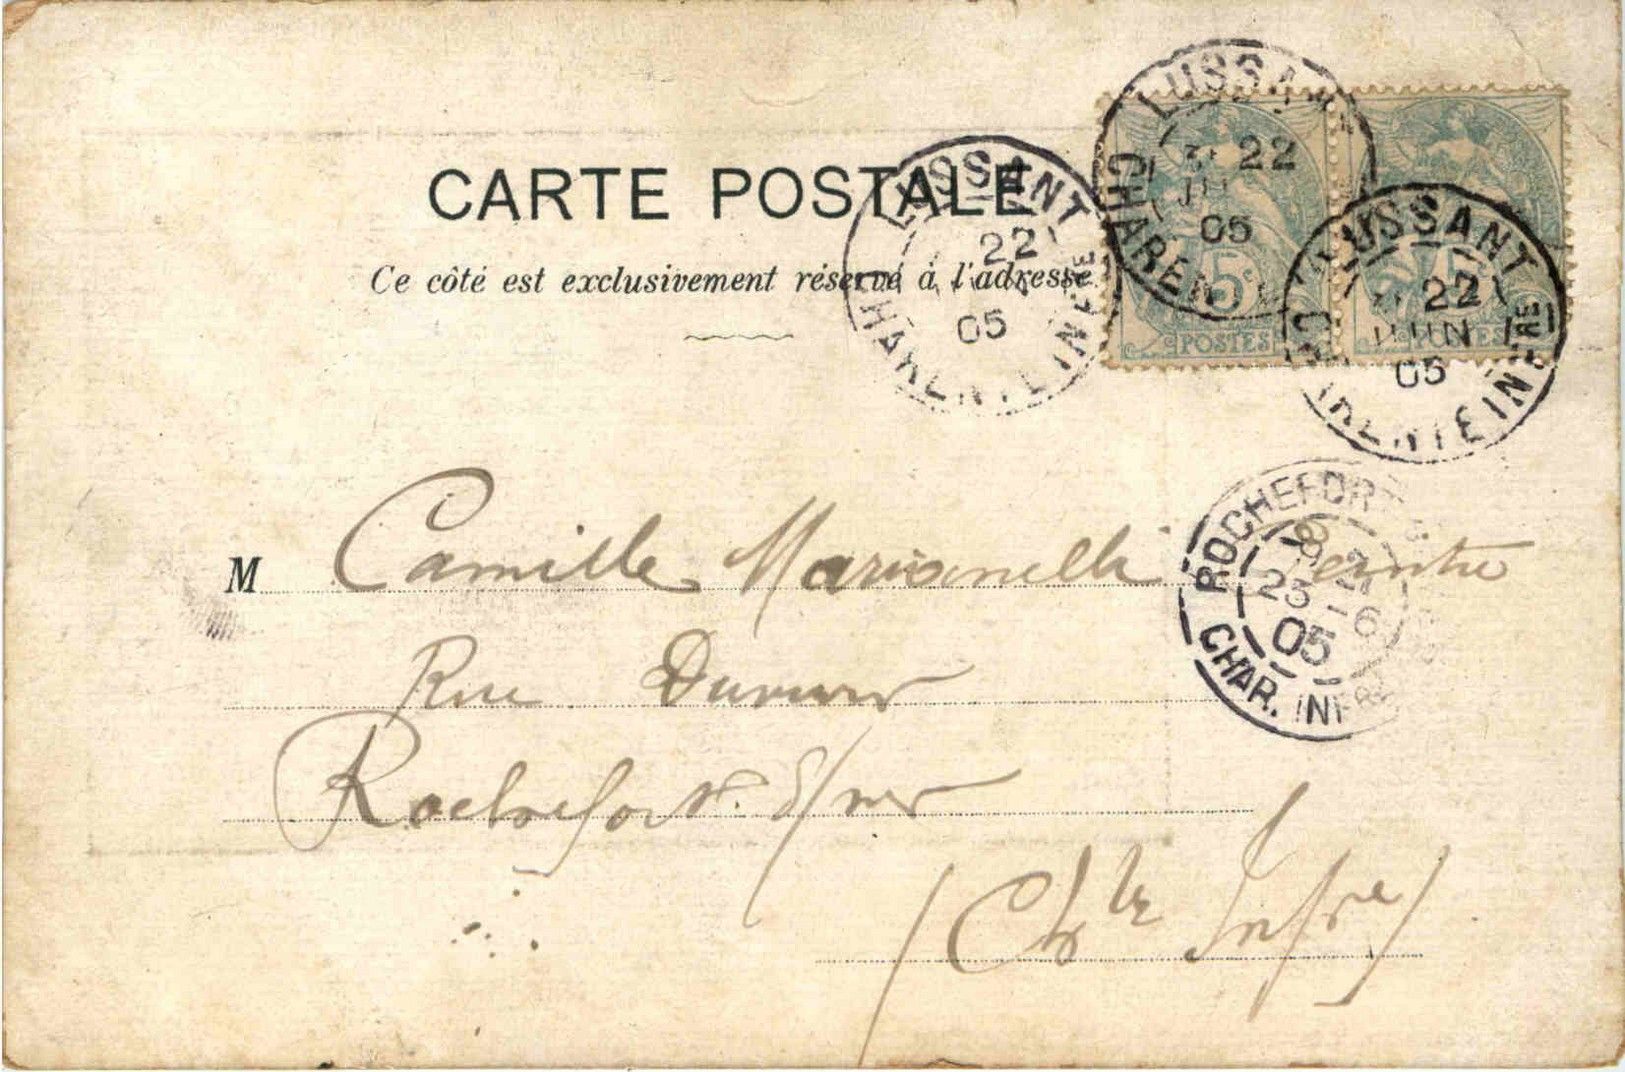 CARTE POSTALE
Ce côté est exclusivement réservé à l'adresse
LUSSANT
22
05
CHARENTE INFRE
LUSSANT
3E 22
05
CHARENTE
5c
POSTES
LUSSANT
3E 22
JUIN
05
CHARENTE INFRE
POSTES
ROCHEFORT
23 6
05
CHAR. INFRE
M Camille Marianelli Peintre
Rue
Rochefort s/mer
(Chte Infre)